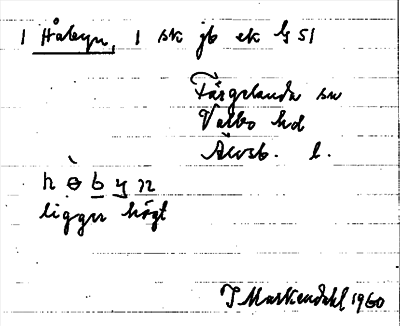 1 Håbyn, 1 sk jb ek b 51
Färgelanda sn
Valbo hd
Älvsb. l.
h ɵ̀ b y n
ligger högt
J Markendahl 1960